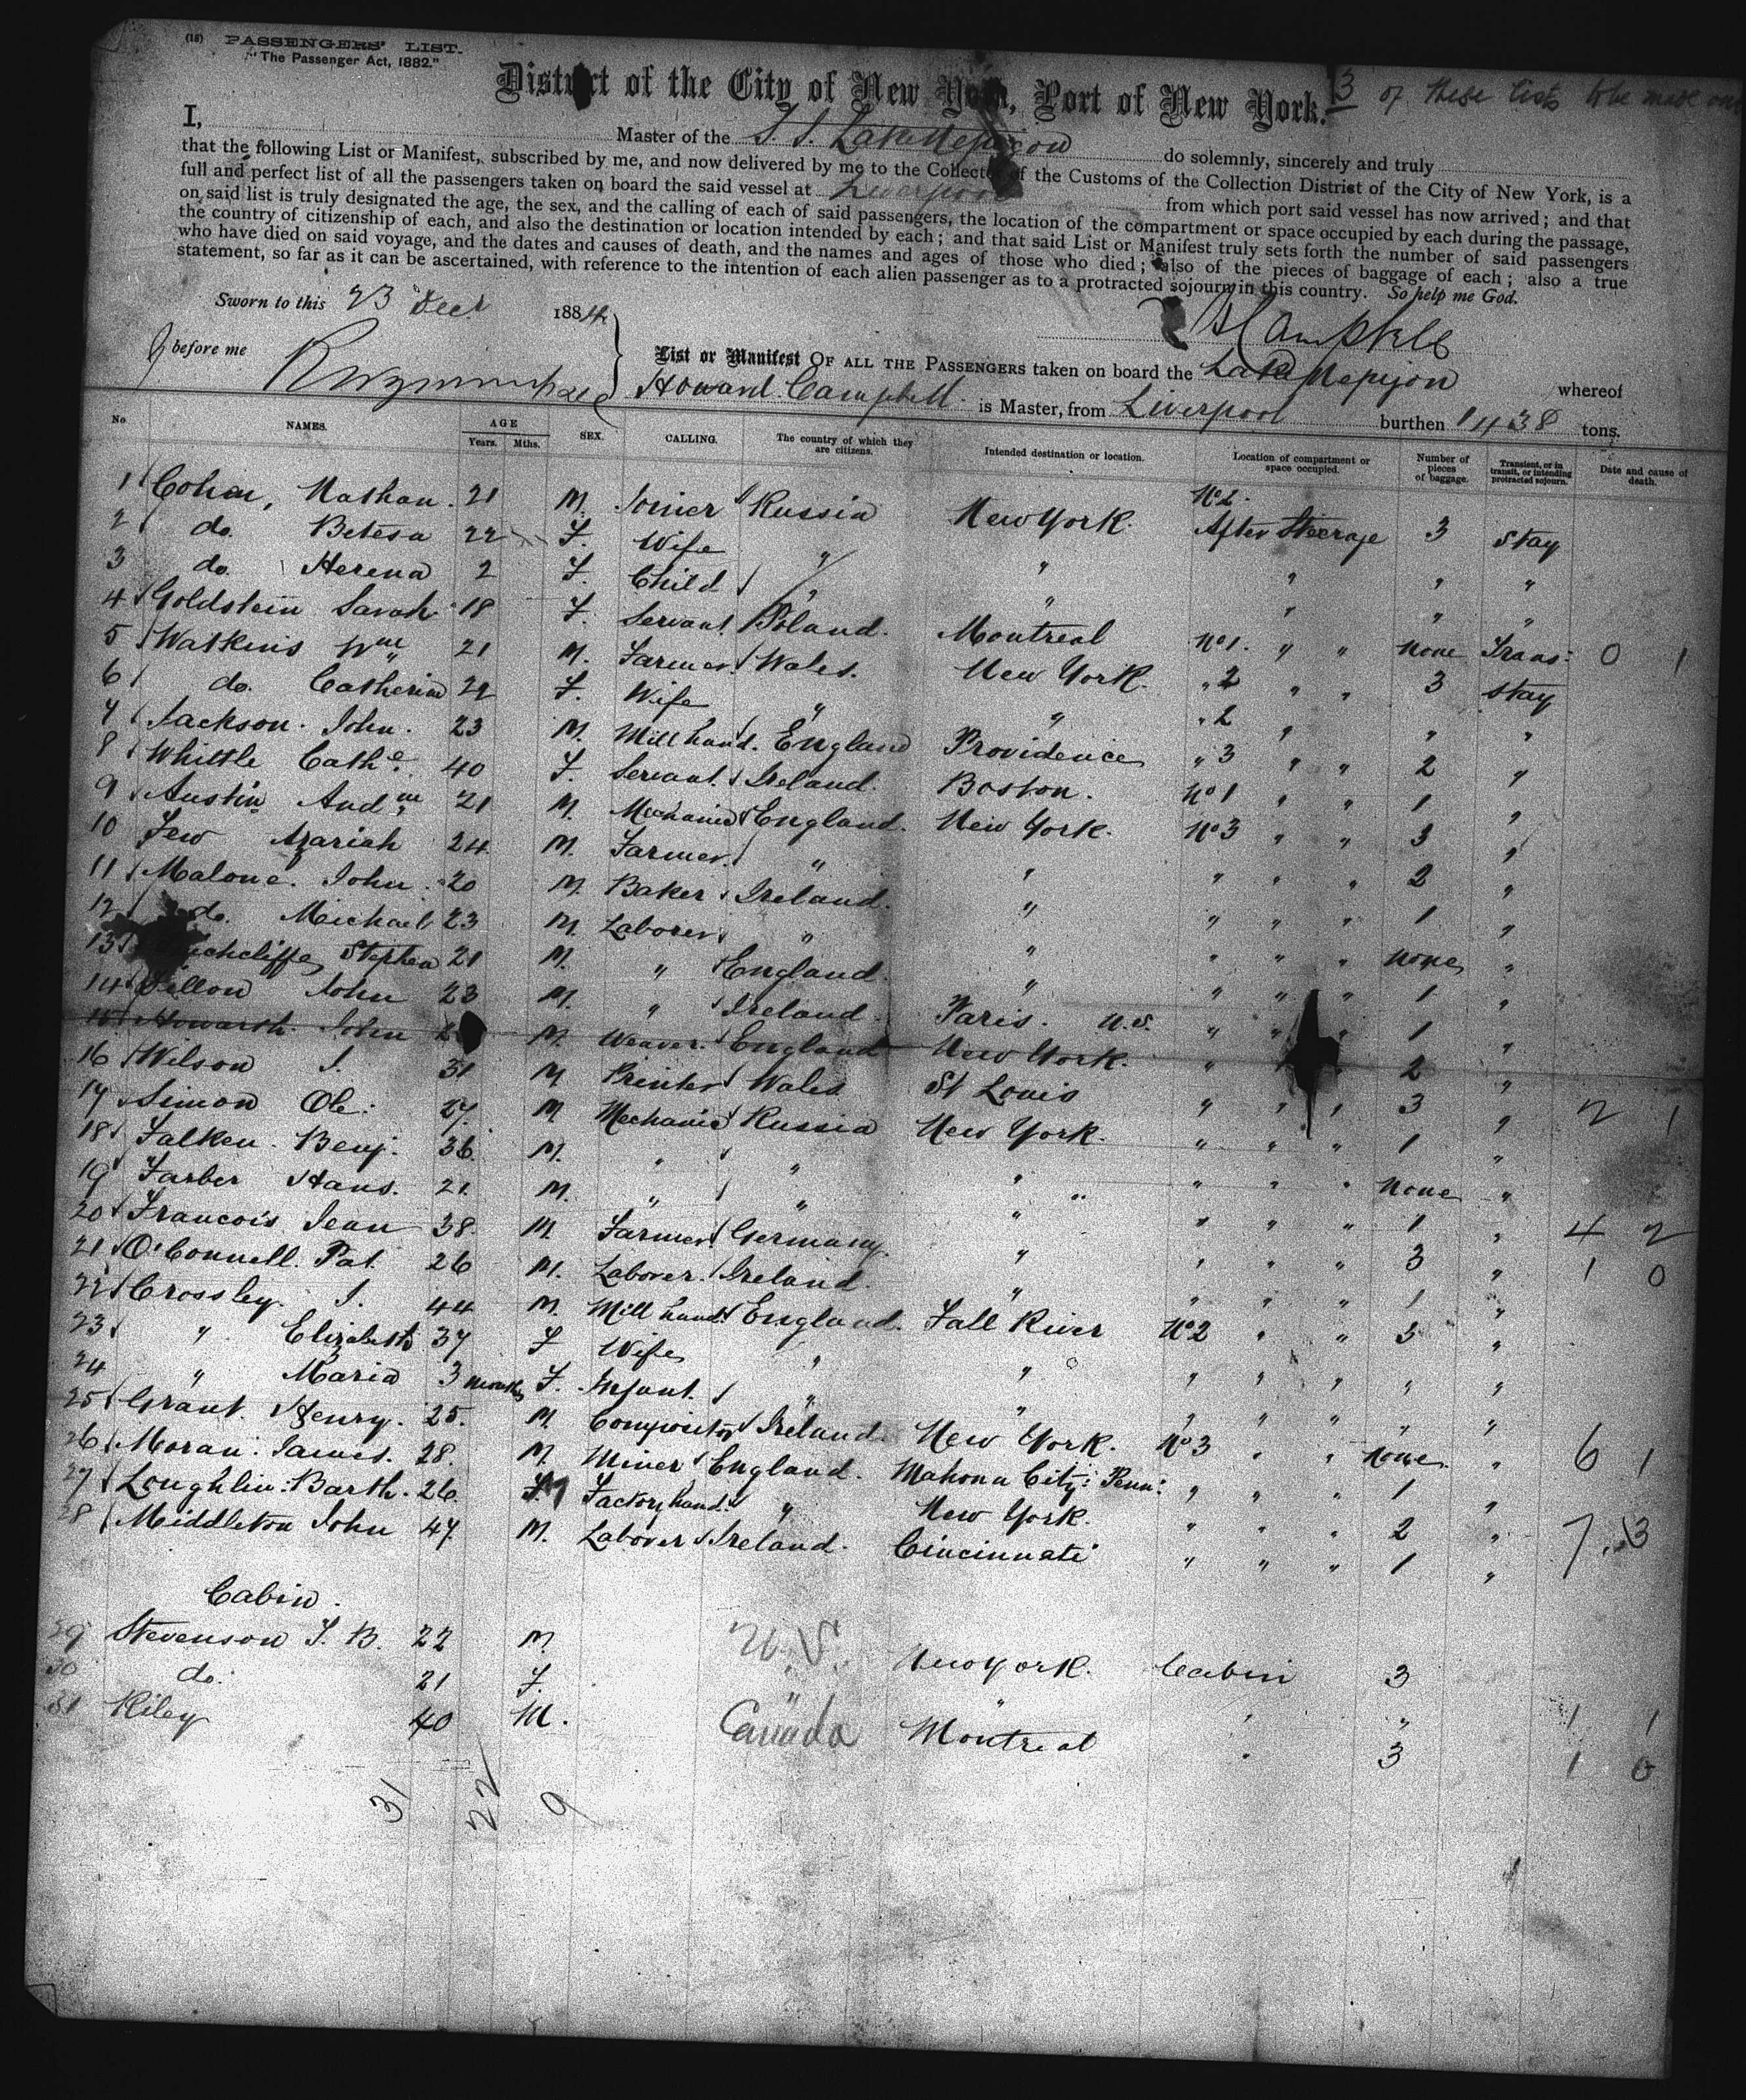 (16) PASSENGERS' LIST.
"The Passenger Act, 1882."
3 of these lists to be made out
District of the City of New York, Port of New York.
I, Master of the S. S. Lake Nepigon do solemnly, sincerely and truly
that the following List or Manifest, subscribed by me, and now delivered by me to the Collector of the Customs of the Collection District of the City of New York, is a
full and perfect list of all the passengers taken on board the said vessel at Liverpool from which port said vessel has now arrived; and that
on said list is truly designated the age, the sex, and the calling of each of said passengers, the location of the compartment or space occupied by each during the passage,
the country of citizenship of each, and also the destination or location intended by each; and that said List or Manifest truly sets forth the number of said passengers
who have died on said voyage, and the dates and causes of death, and the names and ages of those who died; also of the pieces of baggage of each; also a true
statement, so far as it can be ascertained, with reference to the intention of each alien passenger as to a protracted sojourn in this country. So help me God.
Sworn to this 23 Decr 1884
H Campbell
before me
List or Manifest OF ALL THE PASSENGERS taken on board the Lake Nepigon whereof
Howard Campbell is Master, from Liverpool burthen 1438 tons.
No NAMES. AGE Years. Mths. SEX. CALLING. The country of which they are citizens. Intended destination or location. Location of compartment or space occupied. Number of pieces of baggage. Transient, or in transit, or intending protracted sojourn. Date and cause of death.
1 Cohen, Nathan. 21 M. Joiner Russia New York. No 2. After Steerage 3 Stay
2 do. Betesa 22 F. Wife " " " " "
3 do. Herena 2 F. Child " " " " "
4 Goldstein Sarah 18 F. Servant Poland. Montreal No 1. " " None Trans: 0 1
5 Watkins Wm 21 M. Farmer Wales. New York. " 2 " " 3 Stay
6 do. Catherine 22 F. Wife " " " 2 " " "
7 Jackson. John. 23 M. Mill hand. England Providence " 3 " " 2 "
8 Whittle Cathe. 40 F. Servant Ireland. Boston. No 1 " " 1 "
9 Austin And 21 M. Mechanic England. New York. No 3 " " 3 "
10 Few Azariah 24 M. Farmer. " " " " " 2 "
11 Malone. John. 20 M. Baker Ireland. " " " " 1 "
12 do. Michael 23 M. Laborer " " " " " none "
13 Stephen 21 M. " England. " " " " 1 "
14 John 23 M. " Ireland. Paris. U.S. " " " 1 "
15 Howarth John M. Weaver. England New York. " " " 2 "
16 Wilson J. 31 M Printer Wales St Louis " " " 3 " 2 1
17 Simon Ole. 27. M Mechanic Russia New York. " " " 1 "
18 Falken. Benj. 36. M. " " " " " " none "
19 Farber Hans. 21. M. " " " " " " 1 " 4 2
20 Francois Jean 38. M Farmer Germany. " " " " 3 " 1 0
21 O'Connell. Pat. 26 M. Laborer. Ireland. " " " " 1 "
22 Crossley. J. 44 M. Mill hand England. Fall River No 2 " " 3 "
23 " Elizabeth 37 F Wife " " " " " " "
24 " Maria 3 months F. Infant. " " " " " " "
25 Grant. Henry. 25. M. Compositor Ireland. New York. No 3 " " None. " 6 1
26 Moran. James. 28. M. Miner England. Mahona City: Penn: " " " 1 "
27 Loughlin: Barth. 26. M Factory hand. " New York. " " " 2 " 7 3
28 Middleton John 47. M. Laborer Ireland. Cincinnati " " " 1 "
Cabin.
29 Stevenson J. B. 22 M. U.S. New York. Cabin 3
30 do. 21 F. " " " " 1 1
31 Riley 40 M. Canada Montreal " 3 1 0
31 22 9